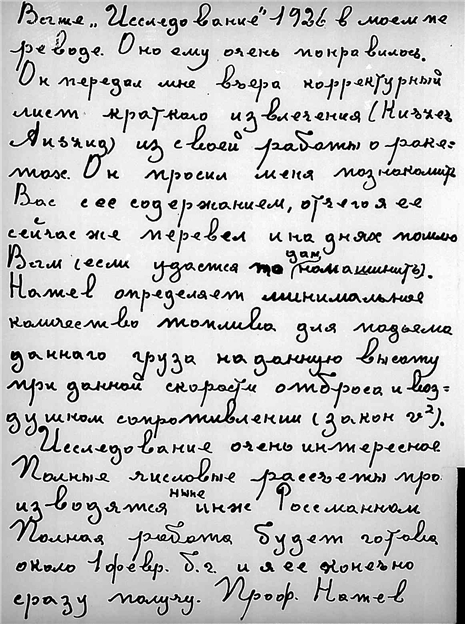 Ваше „Исследование" 1926 в моем пе
реводе. Оно ему очень понравилось.
Он передал мне вчера корректурный
лист краткого извлечения (
) из своей работы о раке=
тах. Он просил меня познакомить
Вас с ее содержанием, отчего я ее
сейчас же перевел и на днях пошлю
Вам (если удастся дам (
Намел определяет минимальное
количество топлива для подъема
даннаго груза на данную высоту
при данной скорости отброса и воз=
душном сопротивлении (закон v²).
Исследование очень интересное
Полные числовые рассчеты про
изводятся ныне инж Россманном
Полная работа будет готова
около 1 февр. б.г. и я ее конечно
сразу получу. Проф. Намел